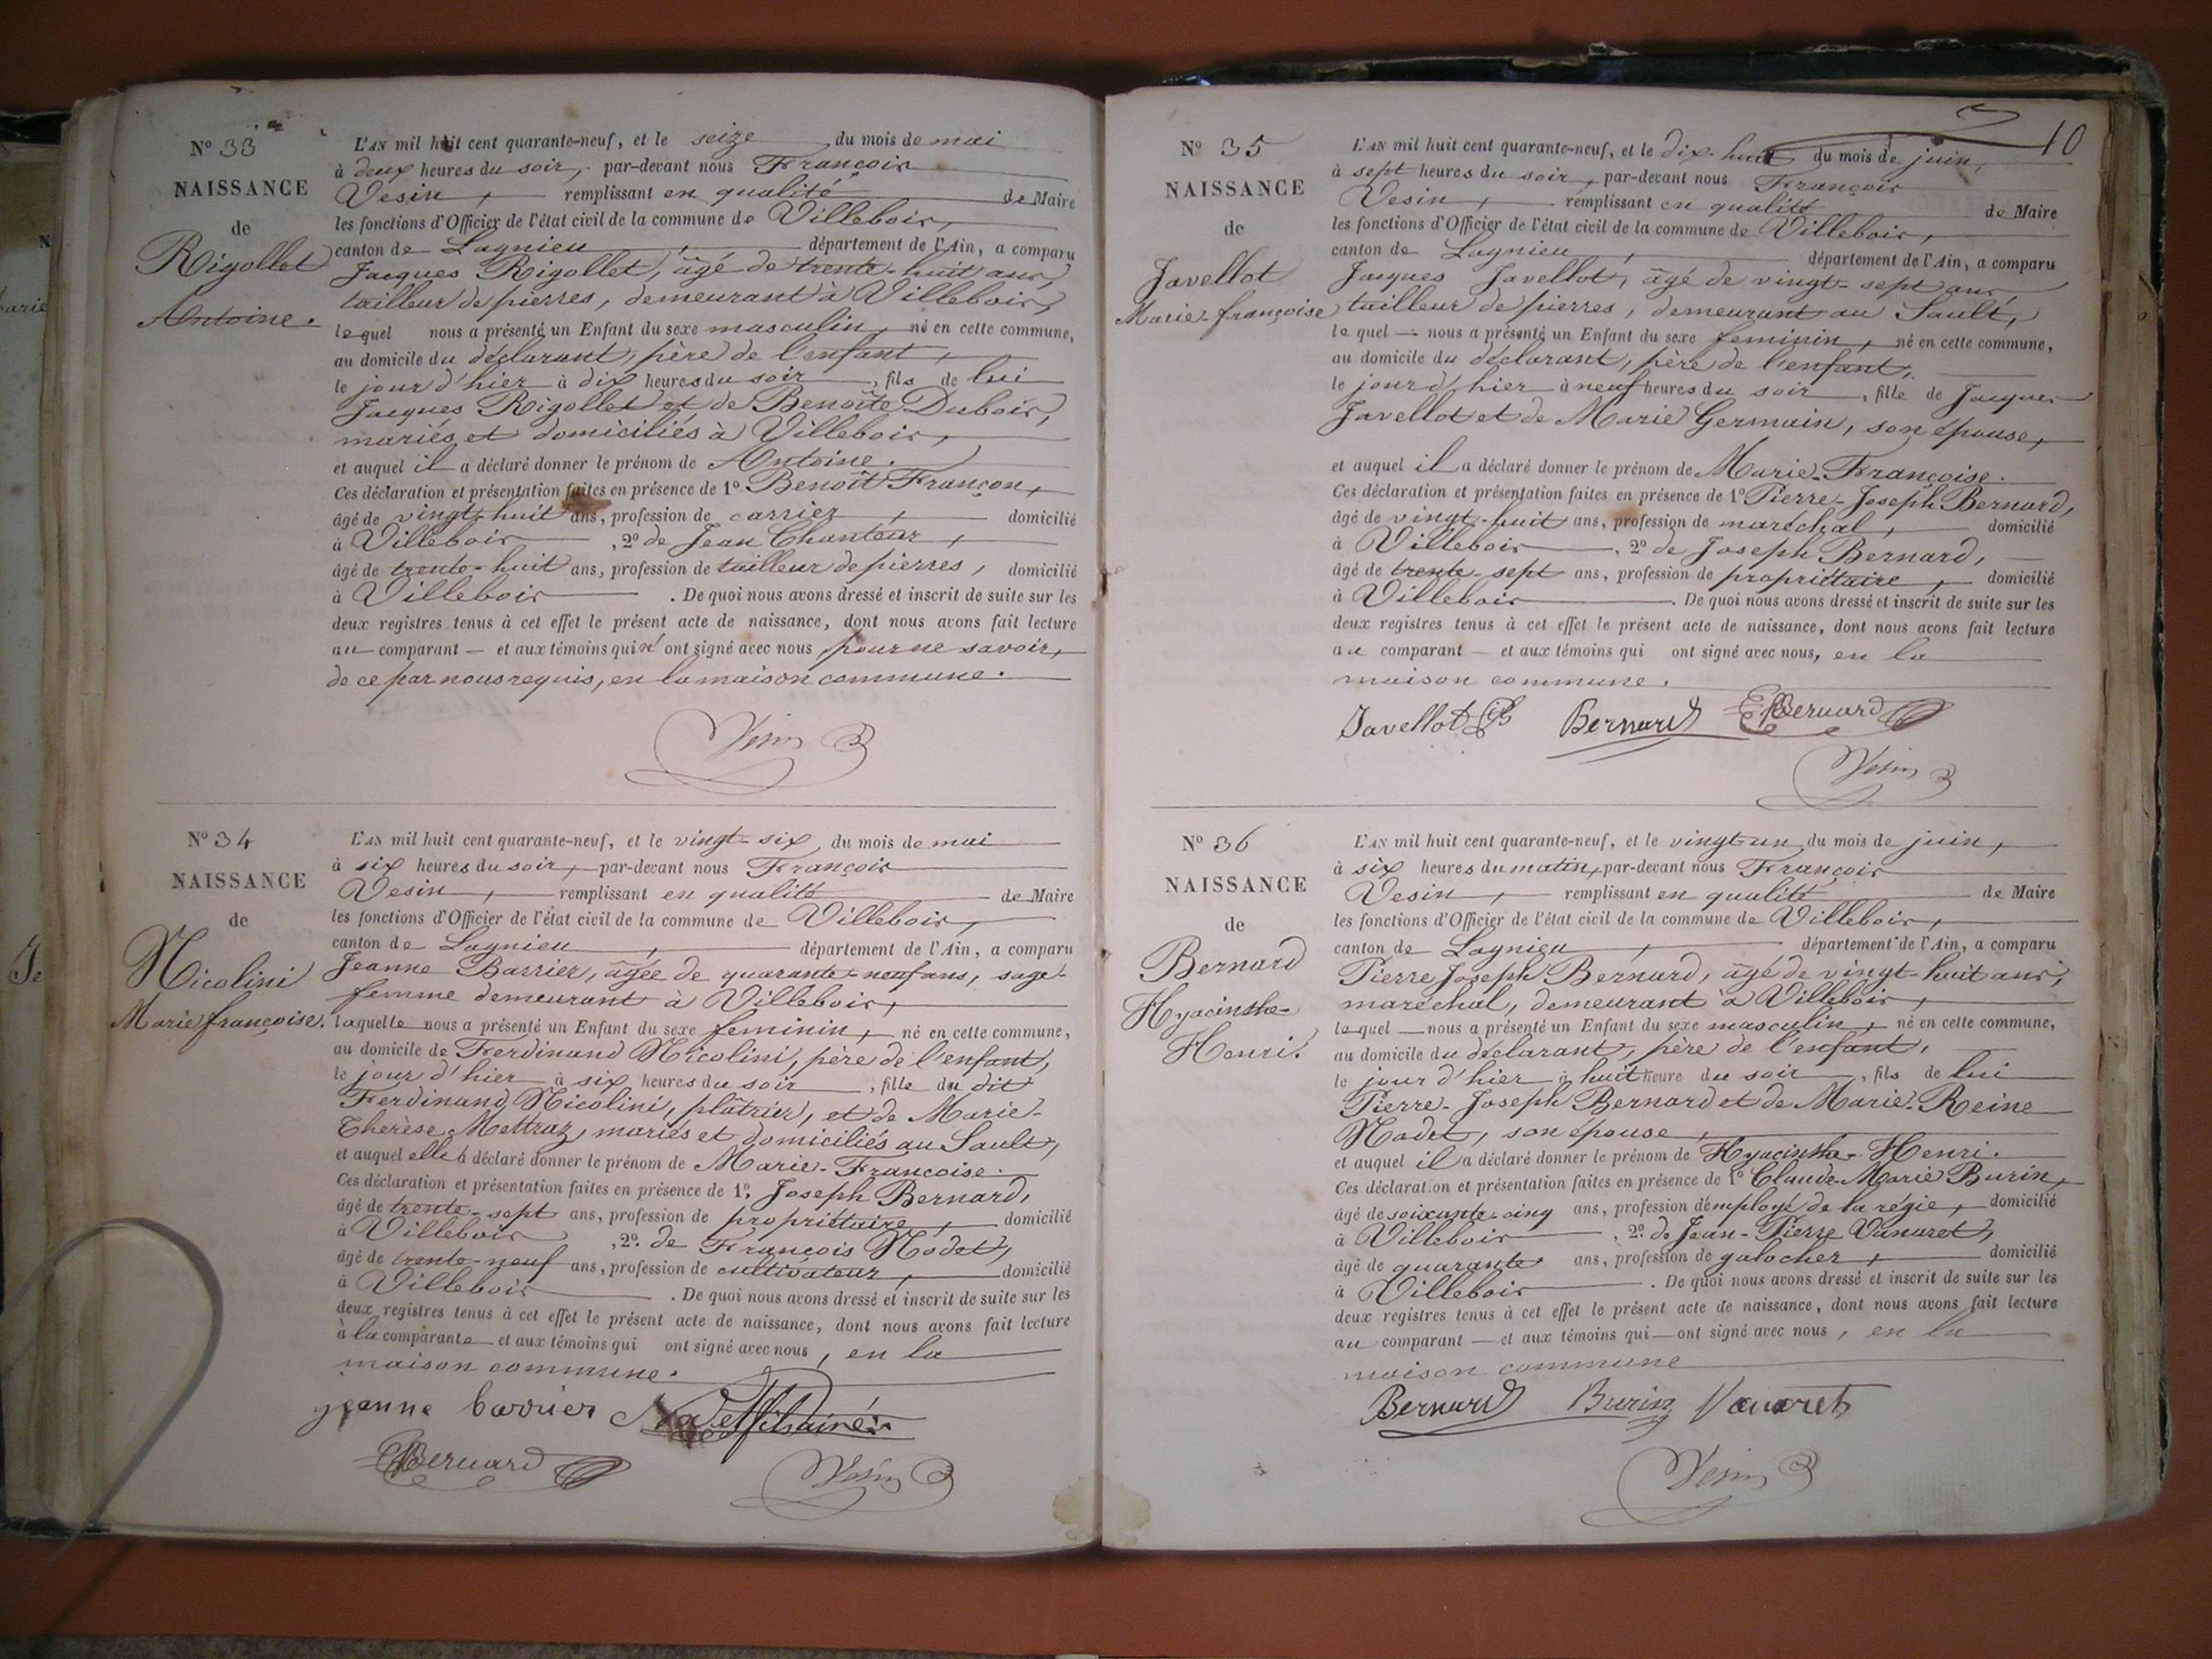 N° 33
NAISSANCE
de
Rigollet
Antoine.
L'AN mil huit cent quarante-neuf, et le seize du mois de mai
à deux heures du soir, par-devant nous François
Vesin, remplissant en qualité de Maire
les fonctions d'Officier de l'état civil de la commune de Villebois,
canton de Lagnieu, département de l'Ain, a comparu
Jacques Rigollet, âgé de trente-huit ans,
tailleur de pierres, demeurant à Villebois,
lequel nous a présenté un Enfant du sexe masculin, né en cette commune,
au domicile du déclarant, père de l'enfant,
le jour d'hier à dix heures du soir, fils de lui
Jacques Rigollet et de Benoîte Dubois,
mariés et domiciliés à Villebois,
et auquel il a déclaré donner le prénom de Antoine.
Ces déclaration et présentation faites en présence de 1° Benoît Françon,
âgé de vingt-huit ans, profession de carrier, domicilié
à Villebois, 2° de Jean Chanteur,
âgé de trente-huit ans, profession de tailleur de pierres, domicilié
à Villebois. De quoi nous avons dressé et inscrit de suite sur les
deux registres tenus à cet effet le présent acte de naissance, dont nous avons fait lecture
au comparant et aux témoins qui n'ont signé avec nous, pour ne savoir,
de ce par nous requis, en la maison commune.
Vesin
N° 34
NAISSANCE
de
Nicolini
Marie françoise.
L'AN mil huit cent quarante-neuf, et le vingt-six du mois de mai
à six heures du soir, par-devant nous François
Vesin, remplissant en qualité de Maire
les fonctions d'Officier de l'état civil de la commune de Villebois,
canton de Lagnieu, département de l'Ain, a comparu
Jeanne Barrier, âgée de quarante-neuf ans, sage-
femme demeurant à Villebois,
laquelle nous a présenté un Enfant du sexe feminin, né en cette commune,
au domicile de Ferdinand Nicolini, père de l'enfant,
le jour d'hier à six heures du soir, fille du dit
Ferdinand Nicolini, plâtrier, et de Marie-
Thérèse Mettraz, mariés et domiciliés au Sault,
et auquel elle a déclaré donner le prénom de Marie-Françoise.
Ces déclaration et présentation faites en présence de 1°. Joseph Bernard,
âgé de trente-sept ans, profession de propriétaire, domicilié
à Villebois, 2°. de François Nodet,
âgé de trente-neuf ans, profession de cultivateur, domicilié
à Villebois. De quoi nous avons dressé et inscrit de suite sur les
deux registres tenus à cet effet le présent acte de naissance, dont nous avons fait lecture
à la comparante et aux témoins qui ont signé avec nous, en la
maison commune.
jeanne barrier Nodet fils ainé
Bernard Vesin
10
N° 35
NAISSANCE
de
Javellot
Marie-françoise
L'AN mil huit cent quarante-neuf, et le dix-huit du mois de juin,
à sept heures du soir, par-devant nous François
Vesin, remplissant en qualité de Maire
les fonctions d'Officier de l'état civil de la commune de Villebois,
canton de Lagnieu, département de l'Ain, a comparu
Jacques Javellot, âgé de vingt-sept ans,
tailleur de pierres, demeurant au Sault,
lequel nous a présenté un Enfant du sexe feminin, né en cette commune,
au domicile du déclarant, père de l'enfant,
le jour d'hier à neuf heures du soir, fille de Jacques
Javellot et de Marie Germain, son épouse,
et auquel il a déclaré donner le prénom de Marie-Françoise.
Ces déclaration et présentation faites en présence de 1° Pierre-Joseph Bernard,
âgé de vingt-huit ans, profession de maréchal, domicilié
à Villebois, 2° de Joseph Bernard,
âgé de trente-sept ans, profession de propriétaire, domicilié
à Villebois. De quoi nous avons dressé et inscrit de suite sur les
deux registres tenus à cet effet le présent acte de naissance, dont nous avons fait lecture
au comparant et aux témoins qui ont signé avec nous, en la
maison commune.
Javellot fils Bernard Bernard
Vesin
N° 36
NAISSANCE
de
Bernard
Hyacinthe-
Henri.
L'AN mil huit cent quarante-neuf, et le vingt-un du mois de juin,
à six heures du matin, par-devant nous François
Vesin, remplissant en qualité de Maire
les fonctions d'Officier de l'état civil de la commune de Villebois,
canton de Lagnieu, département de l'Ain, a comparu
Pierre Joseph Bernard, âgé de vingt-huit ans,
maréchal, demeurant à Villebois,
lequel nous a présenté un Enfant du sexe masculin, né en cette commune,
au domicile du déclarant, père de l'enfant,
le jour d'hier à huit heure du soir, fils de lui
Pierre-Joseph Bernard et de Marie-Reine
Nodet, son épouse,
et auquel il a déclaré donner le prénom de Hyacinthe-Henri.
Ces déclaration et présentation faites en présence de 1° Claude-Marie Burin,
âgé de soixante-cinq ans, profession d'employé de la régie, domicilié
à Villebois, 2°. de Jean-Pierre Vanaret,
âgé de quarante ans, profession de galocher, domicilié
à Villebois. De quoi nous avons dressé et inscrit de suite sur les
deux registres tenus à cet effet le présent acte de naissance, dont nous avons fait lecture
au comparant et aux témoins qui ont signé avec nous, en la
maison commune
Bernard Burin Vanaret
Vesin